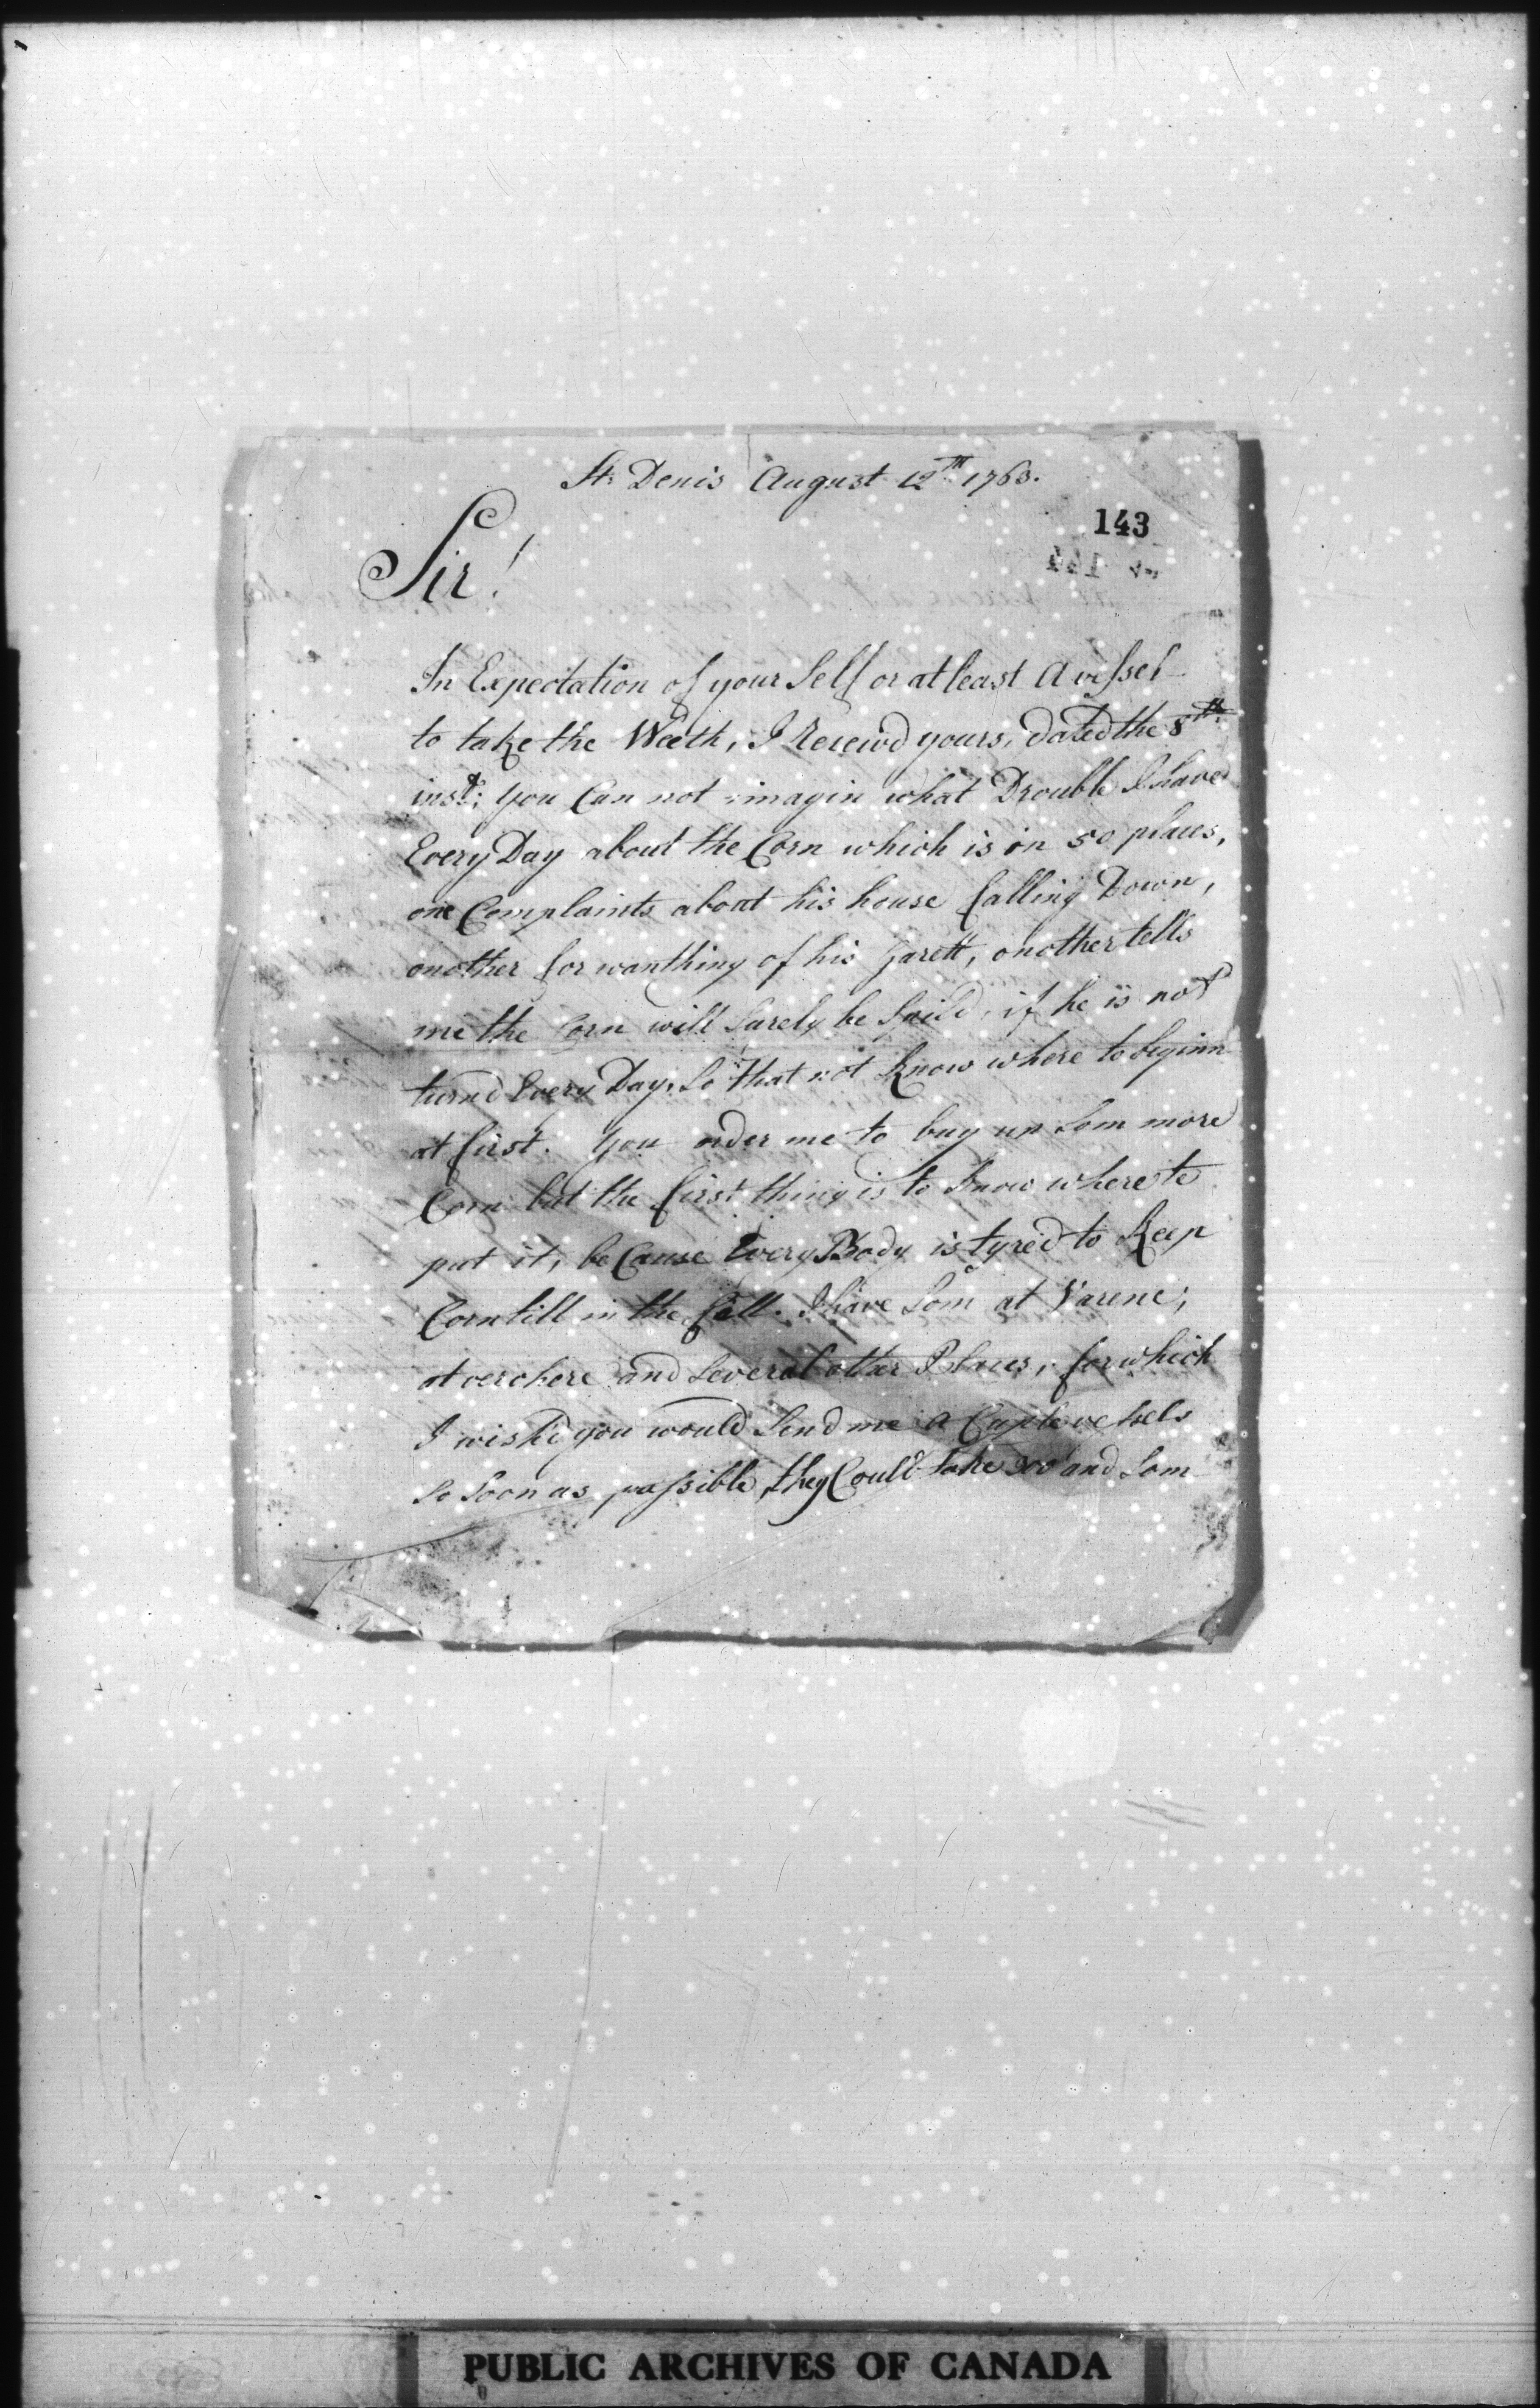 St. Denis August 12th 1763.
143
Sir!
In Expectation of your Self or at least A vessel
to take the Weeth, I Receivd yours, dated the 8th
inst; you Can not imagin what Drouble I have
Every Day about the Corn which is in 50 places,
one Complaints about his house falling Down,
onother for wanthing of his Garett, onother tells
me the Corn will Surely be Spild, if he is not
turnd Every Day, So that not Know where to beginn
at first. You order me to buy up Som more
Corn but the first thing is to Know where to
put it, be Cause Every Body is tyred to Keep
Corn till in the fall. I have Som at Varene,
at verchere and Several other Places, for which
I wish'd you would Send me A Cuple vessels
So Soon as possible, they Could take and Som
PUBLIC ARCHIVES OF CANADA